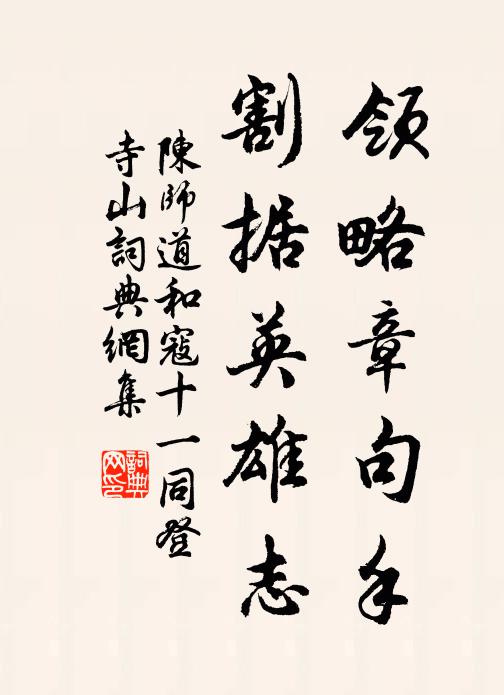 領略章句手
割据英雄志
陳師道和寇十一同登
寺山詞典網集
詞典
网印